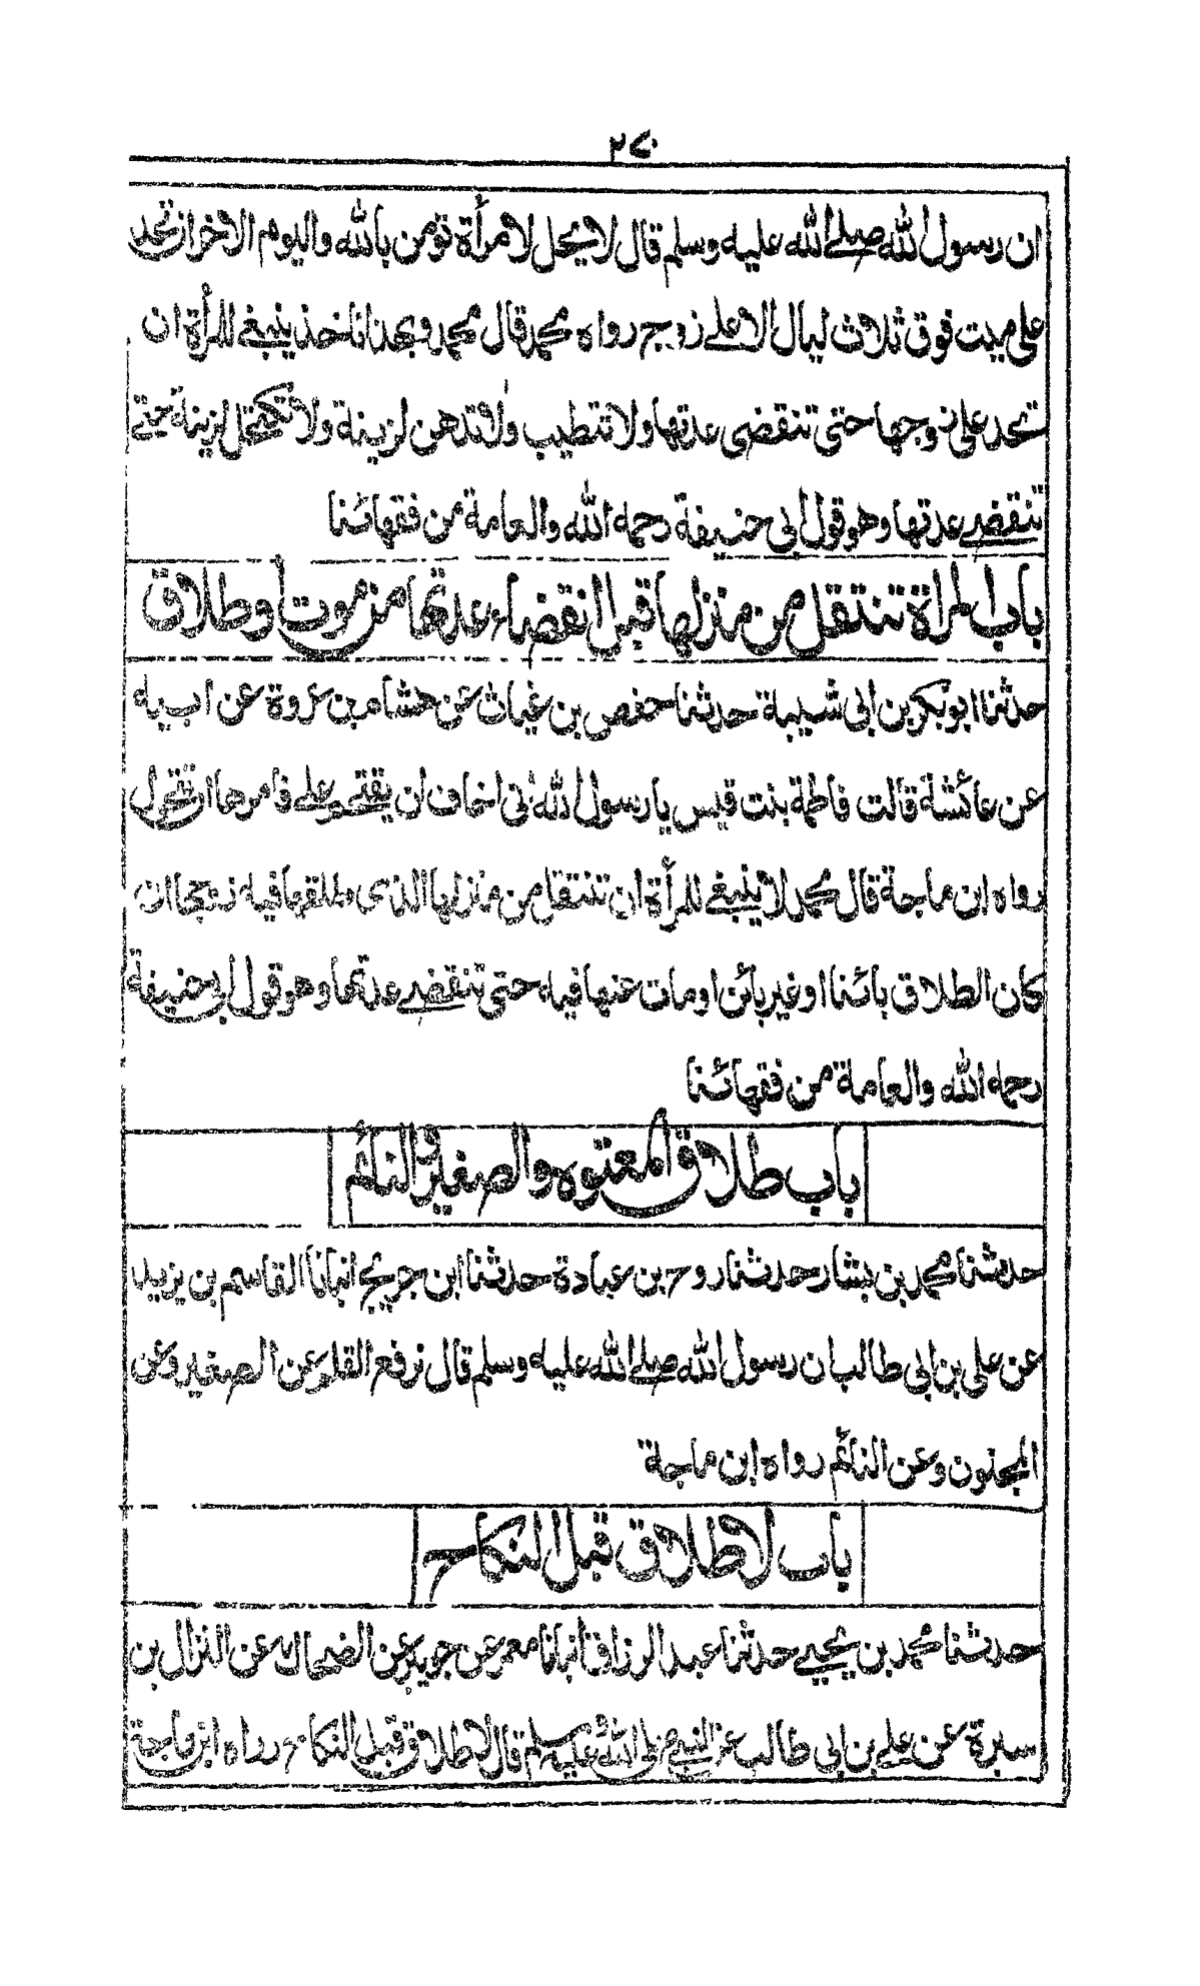 ٢٧٠
ان رسول الله صلے الله عليه وسلم قال لا يحل لامرأة تؤمن بالله واليوم الاخر ان تحد
على ميت فوق ثلاث ليال الا علے زوج رواه محمد قال محمد وبهذا ناخذ ينبغے للمرأة ان
تحد على زوجها حتى تنقضى عدتها ولا تتطيب ولا تدهن لزينة ولا تكتحل لزينة حتے
تنقضے عدتها وهو قول ابى حنيفة رحمه الله والعامة من فقهائنا
باب المرأة تنتقل من منزلها قبل انقضاء عدتها من موت او طلاق
حدثنا ابو بكر بن ابى شيبة حدثنا حفص بن غياث عن هشام بن عروة عن ابيه
عن عائشة قالت فاطمة بنت قيس يا رسول الله انى اخاف ان يقتحم علے فامرها ان تتحول
رواه ابن ماجة قال محمد لا ينبغے للمرأة ان تنتقل من منزلها الذى طلقها فيه زوجها ان
كان الطلاق بائنا او غير بائن او مات عنها فيه حتى تنقضے عدتها وهو قول ابى حنيفة
رحمه الله والعامة من فقهائنا
باب طلاق المعتوه والصغير والنائم
حدثنا محمد بن بشار حدثنا روح بن عبادة حدثنا ابن جريج انبانا القاسم بن يزيد
عن على بن ابى طالب ان رسول الله صلے الله عليه وسلم قال يرفع القلم عن الصغير وعن
المجنون وعن النائم رواه ابن ماجة
باب لا طلاق قبل النكاح
حدثنا محمد بن يحيے حدثنا عبد الرزاق انبانا معمر عن جويبر عن الضحاك عن النزال بن
سبرة عن علے بن ابى طالب عن النبے صلى الله عليه وسلم قال لا طلاق قبل النكاح رواه ابن ماجة